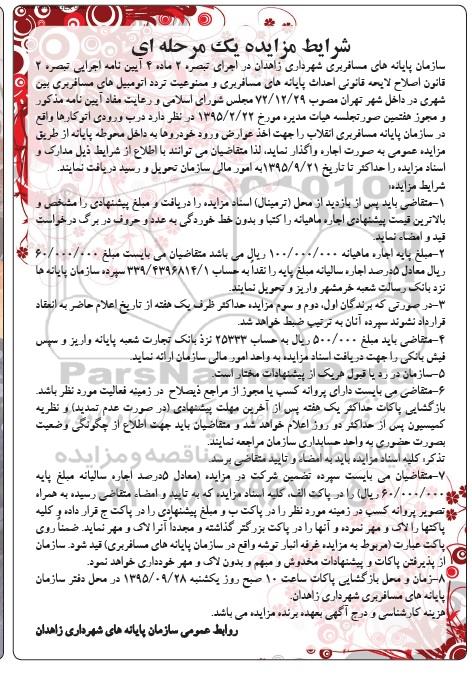 شرایط مزایده یک مرحله ای
سازمان پایانه های مسافربری شهرداری زاهدان در اجرای تبصره ۲ ماده ۴ آیین نامه اجرایی تبصره ۲
قانون اصلاح لایحه قانونی احداث پایانه های مسافربری و ممنوعیت تردد اتومبیل های مسافربری بین
شهری در داخل شهر تهران مصوب ۷۲/۱۲/۲۹ مجلس شورای اسلامی و رعایت مفاد آیین نامه مذکور
و مجوز هفتمین صورتجلسه هیات مدیره مورخ ۱۳۹۵/۲/۲۲ در نظر دارد درب ورودی اتوکارها واقع
در سازمان پایانه مسافربری انقلاب را جهت اخذ عوارض ورود خودروها به داخل محوطه پایانه از طریق
مزایده عمومی به صورت اجاره واگذار نماید، لذا متقاضیان می توانند با اطلاع از شرایط ذیل مدارک و
اسناد مزایده را حداکثر تا تاریخ ۱۳۹۵/۹/۲۱ به امور مالی سازمان تحویل و رسید دریافت نمایند.
شرایط مزایده:
۱-متقاضی باید پس از بازدید از محل (ترمینال) اسناد مزایده را دریافت و مبلغ پیشنهادی را مشخص و
بالاترین قیمت پیشنهادی اجاره ماهیانه را کتبا و بدون خط خوردگی به عدد و حروف در برگ درخواست
قید و امضاء نماید.
۲-مبلغ پایه اجاره ماهیانه ۱۰۰/۰۰۰/۰۰۰ ریال می باشد متقاضیان می بایست مبلغ ۶۰/۰۰۰/۰۰۰
ریال معادل ۵درصد اجاره سالیانه مبلغ پایه را نقدا به حساب ۳۳۹/۴۳۹۶۸۱۴/۱ سپرده سازمان پایانه ها
نزد بانک رسالت شعبه خرمشهر واریز و تحویل نمایند.
۳-در صورتی که برندگان اول، دوم و سوم مزایده حداکثر ظرف یک هفته از تاریخ اعلام حاضر به انعقاد
قرارداد نشوند سپرده آنان به ترتیب ضبط خواهد شد.
۴-متقاضی باید مبلغ ۵۰۰/۰۰۰ ریال به حساب ۲۵۳۳۳ نزد بانک تجارت شعبه پایانه واریز و سپس
فیش بانکی را جهت دریافت اسناد مزایده به واحد امور مالی سازمان ارائه نماید.
۵-سازمان در رد یا قبول هریک از پیشنهادات مختار است.
۶-متقاضی می بایست دارای پروانه کسب یا مجوز از مراجع ذیصلاح در زمینه فعالیت مورد نظر باشد.
بازگشایی پاکات حداکثر یک هفته پس از آخرین مهلت پیشنهادی (در صورت عدم تمدید) و نظریه
کمیسیون پس از حداکثر دو روز اعلام خواهد شد و متقاضیان باید جهت اطلاع از چگونگی وضعیت
بصورت حضوری به واحد حسابداری سازمان مراجعه نمایند.
تذکر: کلیه اسناد مزایده باید به امضاء و تایید متقاضی برسد.
۷-متقاضیان می بایست سپرده تضمین شرکت در مزایده (معادل ۵درصد اجاره سالیانه مبلغ پایه
۶۰/۰۰۰/۰۰۰ ریال) را در پاکت الف، کلیه اسناد مزایده که به تایید و امضاء متقاضی رسیده به همراه
تصویر پروانه کسب در زمینه مورد نظر را در پاکت ب و مبلغ پیشنهادی را در پاکت ج قرار داده و کلیه
پاکتها را لاک و مهر نموده و آنها را در پاکت بزرگتر گذاشته و مجدداً آنرا لاک و مهر نماید. ضمناً روی
پاکت عبارت (مربوط به مزایده غرفه انبار توشه واقع در سازمان پایانه های مسافربری) قید شود. سازمان
از پذیرفتن پاکات و پیشنهادات مخدوش و مبهم و بدون لاک و مهر خودداری خواهد نمود.
۸-زمان و محل بازگشایی پاکات ساعت ۱۰ صبح روز یکشنبه ۱۳۹۵/۰۹/۲۸ در محل دفتر سازمان
پایانه های مسافربری شهرداری زاهدان.
هزینه کارشناسی و درج آگهی بعهده برنده مزایده می باشد.
روابط عمومی سازمان پایانه های شهرداری زاهدان